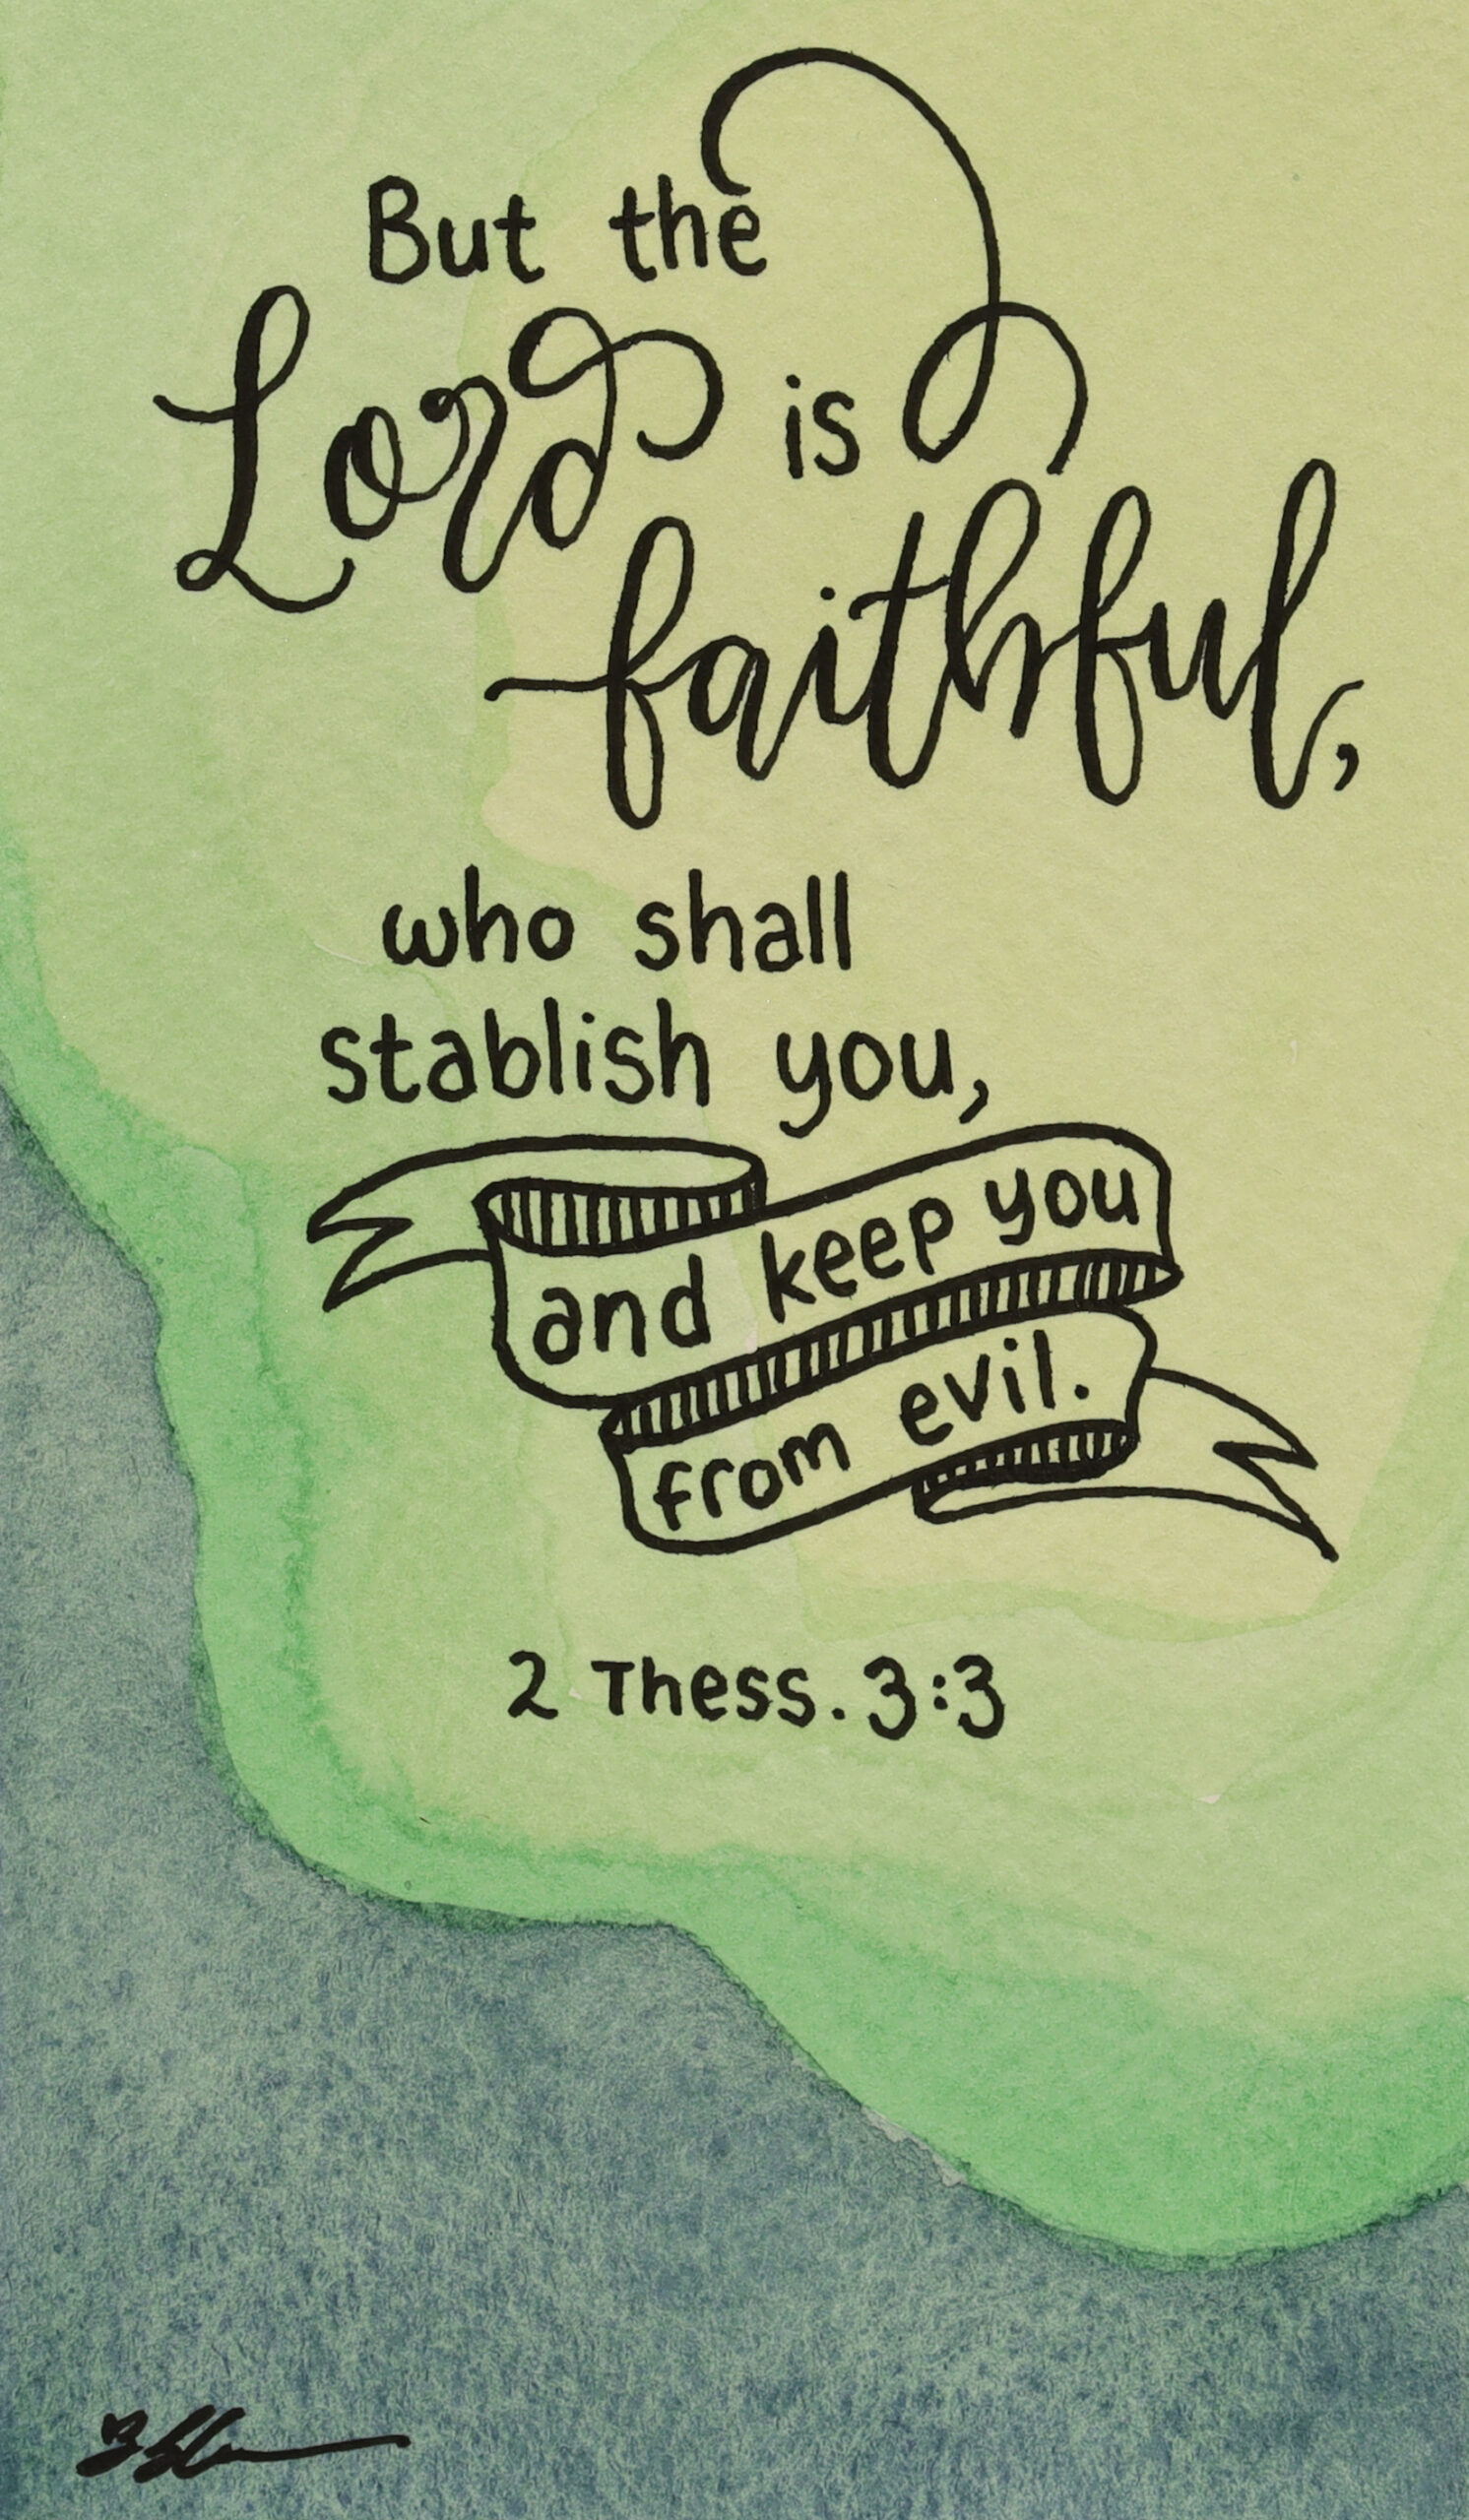 But the
Lord is
faithful,
who shall
stablish you,
and keep you
from evil.
2 Thess. 3:3